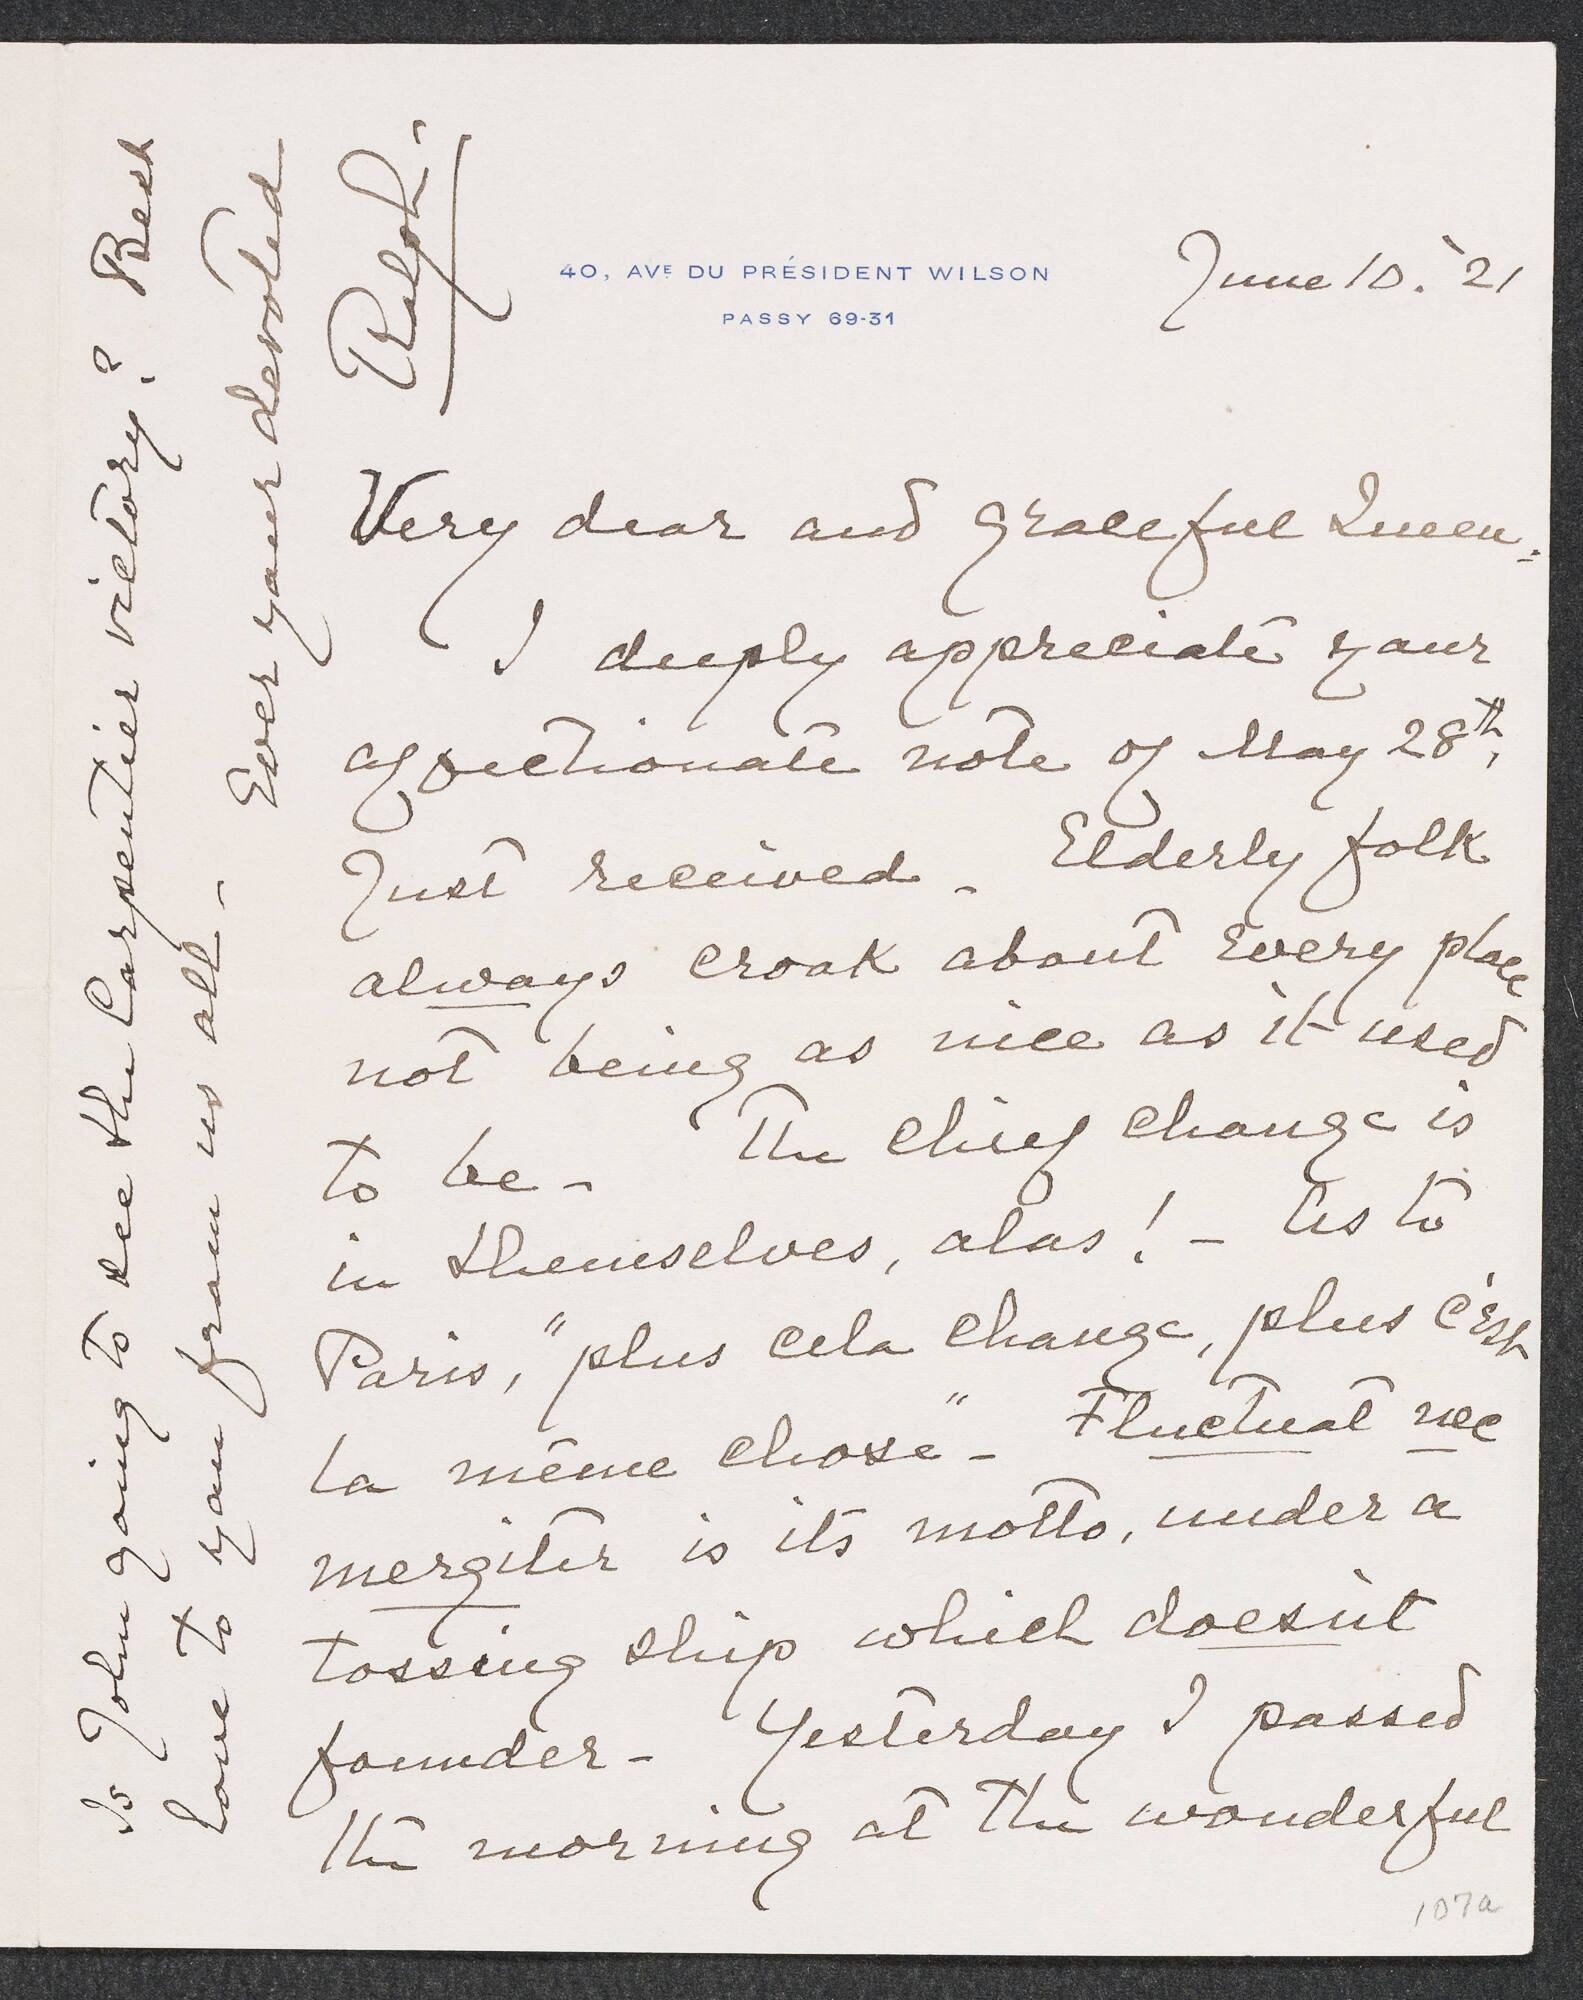 40, AVE DU PRÉSIDENT WILSON
PASSY 69-31
June 10. '21
Very dear and graceful Queen.
I deeply appreciate your
affectionate note of May 28th,
just received - Elderly folk
always croak about every place
not being as nice as it used
to be - The chief change is
in themselves, alas! - As to
Paris, "plus cela change, plus c'est
la même chose" - Fluctuat nec
mergitur is its motto, under a
tossing ship which doesn't
founder - Yesterday I passed
the morning at the wonderful
Is John going to see the Carpentier victory? Best
love to you from us all -
Ever your devoted
Ralph -
107a